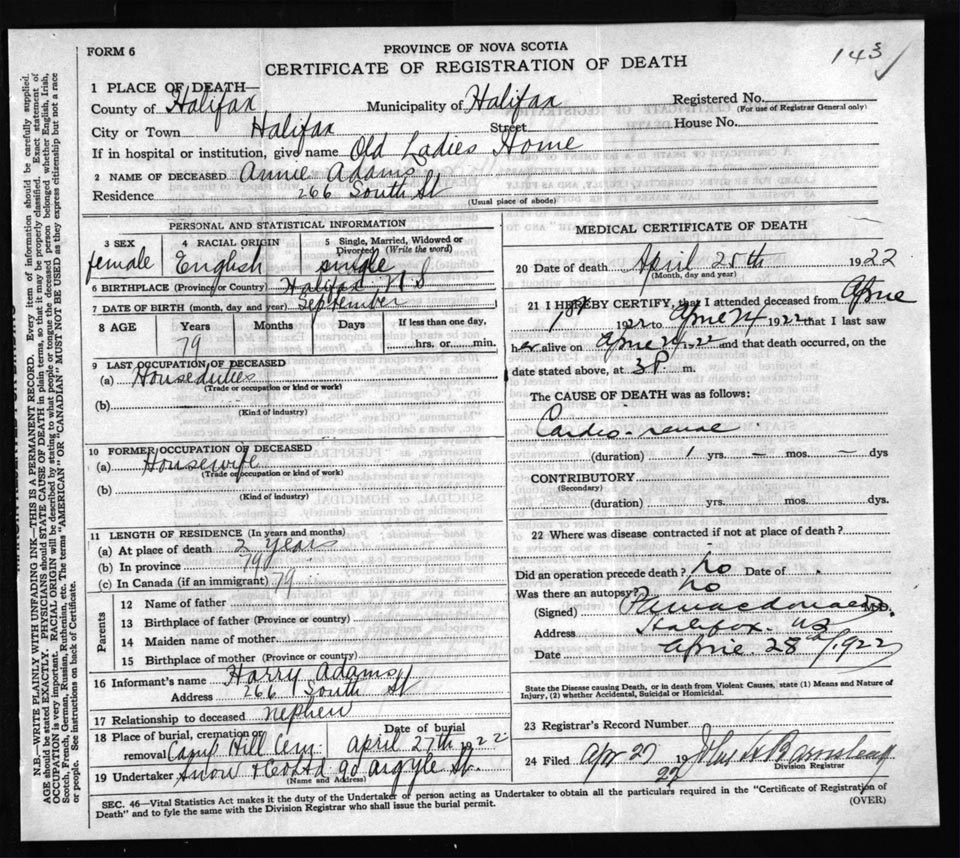 FORM 6
PROVINCE OF NOVA SCOTIA
CERTIFICATE OF REGISTRATION OF DEATH
143
1 PLACE OF DEATH—
County of Halifax Municipality of Halifax Registered No.
(For use of Registrar General only)
City or Town Halifax Street House No.
If in hospital or institution, give name Old Ladies Home
2 NAME OF DECEASED Annie Adams
Residence 266 South St
(Usual place of abode)
PERSONAL AND STATISTICAL INFORMATION
3 SEX 4 RACIAL ORIGIN 5 Single, Married, Widowed or Divorced (Write the word)
female English single
6 BIRTHPLACE (Province or Country) Halifax N S
7 DATE OF BIRTH (month, day and year) September
8 AGE Years Months Days If less than one day,
79 hrs. or min.
9 LAST OCCUPATION OF DECEASED
(a) Houseduties
(Trade or occupation or kind or work)
(b)
(Kind of industry)
10 FORMER OCCUPATION OF DECEASED
(a) Housewife
(Trade or occupation or kind of work)
(b)
(Kind of industry)
11 LENGTH OF RESIDENCE (In years and months)
(a) At place of death 2 years
(b) In province 79
(c) In Canada (if an immigrant) 79
Parents
12 Name of father
13 Birthplace of father (Province or country)
14 Maiden name of mother
15 Birthplace of mother (Province or country)
16 Informant's name Harry Adams
Address 266 South St
17 Relationship to deceased nephew
18 Place of burial, cremation or removal Camp Hill Cem. Date of burial April 27th 1922
19 Undertaker Snow & Co Ltd 90 Argyle St.
(Name and Address)
MEDICAL CERTIFICATE OF DEATH
20 Date of death April 25th 1922
(Month, day and year)
21 I HEREBY CERTIFY, that I attended deceased from April
1st 1922 to April 24 1922 that I last saw
her alive on April 24 1922 and that death occurred, on the
date stated above, at 3 P. m.
The CAUSE OF DEATH was as follows:
Cardio-renal
(duration) 1 yrs. — mos. — dys
CONTRIBUTORY
(Secondary)
(duration) yrs. mos. dys.
22 Where was disease contracted if not at place of death?
Did an operation precede death? No Date of
Was there an autopsy? No
(Signed) Macdonald M.D.
Address Halifax NS
Date April 28th 1922
State the Disease causing Death, or in death from Violent Causes, state (1) Means and Nature of Injury, (2) whether Accidental, Suicidal or Homicidal.
23 Registrar's Record Number
24 Filed Apr 27 1922 John H Barnstead
Division Registrar
SEC. 46—Vital Statistics Act makes it the duty of the Undertaker or person acting as Undertaker to obtain all the particulars required in the "Certificate of Registration of
Death" and to fyle the same with the Division Registrar who shall issue the burial permit.
(OVER)
N.B.—WRITE PLAINLY WITH UNFADING INK—THIS IS A PERMANENT RECORD. Every item of information should be carefully supplied.
AGE should be stated EXACTLY. PHYSICIANS should STATE CAUSE OF DEATH in plain terms, so that it may be properly classified. Exact statement of
OCCUPATION is very important. RACIAL ORIGIN will be described by stating to what people or tongue the deceased person belonged whether English, Irish,
Scotch, French, German, Russian, Ruthenian, etc. The terms "AMERICAN" OR "CANADIAN" MUST NOT BE USED as they express citizenship but not a race
or people. See instructions on back of Certificate.